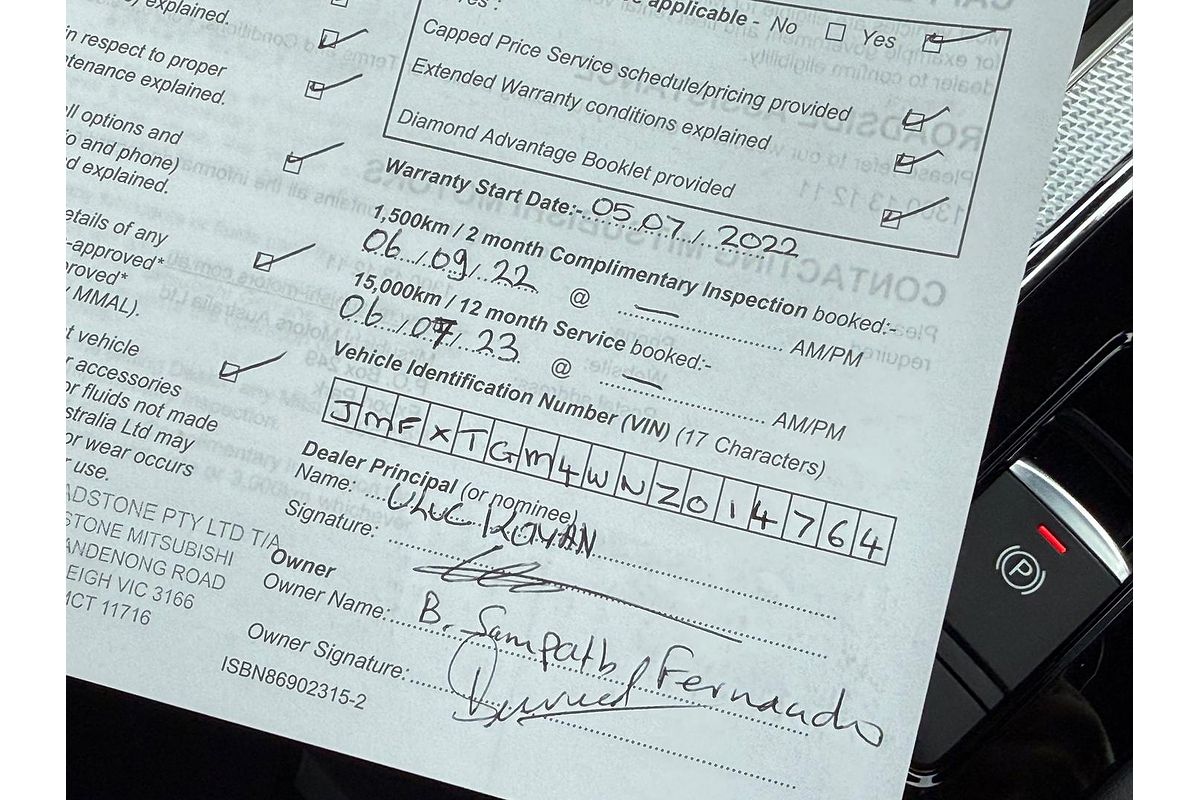 explained.
in respect to proper
tenance explained.
ll options and
o and phone)
d explained.
etails of any
-approved*
roved*
MMAL).
t vehicle
accessories
or fluids not made
stralia Ltd may
or wear occurs
use.
ADSTONE PTY LTD T/A
STONE MITSUBISHI
ANDENONG ROAD
EIGH VIC 3166
MCT 11716
applicable - No Yes
Capped Price Service schedule/pricing provided
Extended Warranty conditions explained
Diamond Advantage Booklet provided
Warranty Start Date:- 05.07./.2022
1,500km / 2 month Complimentary Inspection booked:-
06/09/22 @ — AM/PM
15,000km / 12 month Service booked:-
06/07/23 @ — AM/PM
Vehicle Identification Number (VIN) (17 Characters)
JMFXTGM4WNZ014764
Dealer Principal (or nominee)
Name:
Signature:
Owner
Owner Name: B. Sampath Fernando
Owner Signature:
ISBN86902315-2
P